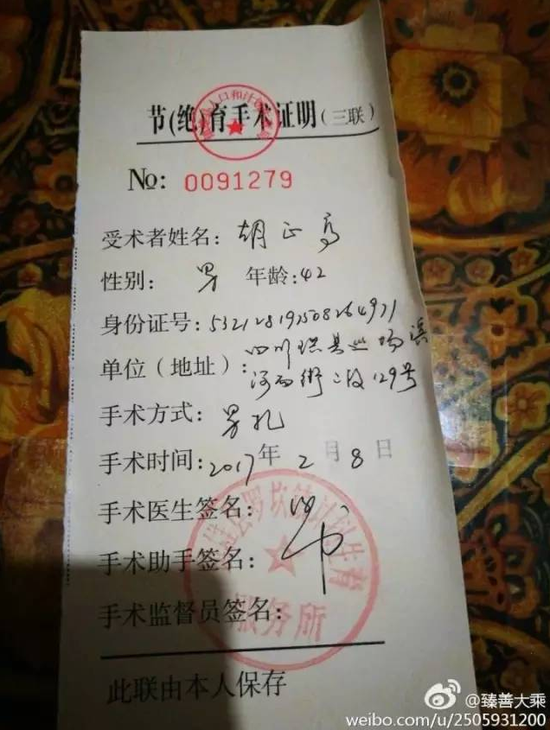 节(绝)育手术证明(三联)
№: 0091279
受术者姓名: 胡正高
性别: 男 年龄: 42
身份证号:
单位(地址): 四川珙县巡场滨
河西街二段129号
手术方式: 男扎
手术时间: 2017年 2 月 8 日
手术医生签名:
手术助手签名:
手术监督员签名:
县罗坎镇计划生育
服务所
此联由本人保存
@臻善大乘
weibo.com/u/2505931200